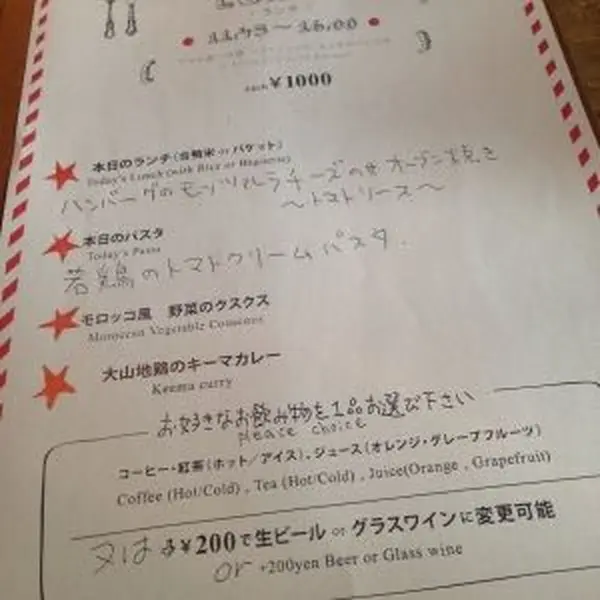 11:45〜16:00
each ¥1000
本日のランチ(自精米 or バケット)
Today's Lunch (with Rice or Baguette)
ハンバーグのモッツァレラチーズのせオーブン焼き
〜トマトソース〜
本日のパスタ
Today's Pasta
若鶏のトマトクリームパスタ.
モロッコ風 野菜のクスクス
Moroccan Vegetable Couscous
大山地鶏のキーマカレー
Keema curry
お好きなお飲み物を1品お選び下さい
please choice
コーヒー・紅茶(ホット/アイス)、ジュース(オレンジ・グレープフルーツ)
Coffee (Hot/Cold) , Tea (Hot/Cold) , Juice(Orange , Grapefruit)
又は ¥200で生ビール or グラスワインに変更可能
or +200yen Beer or Glass wine